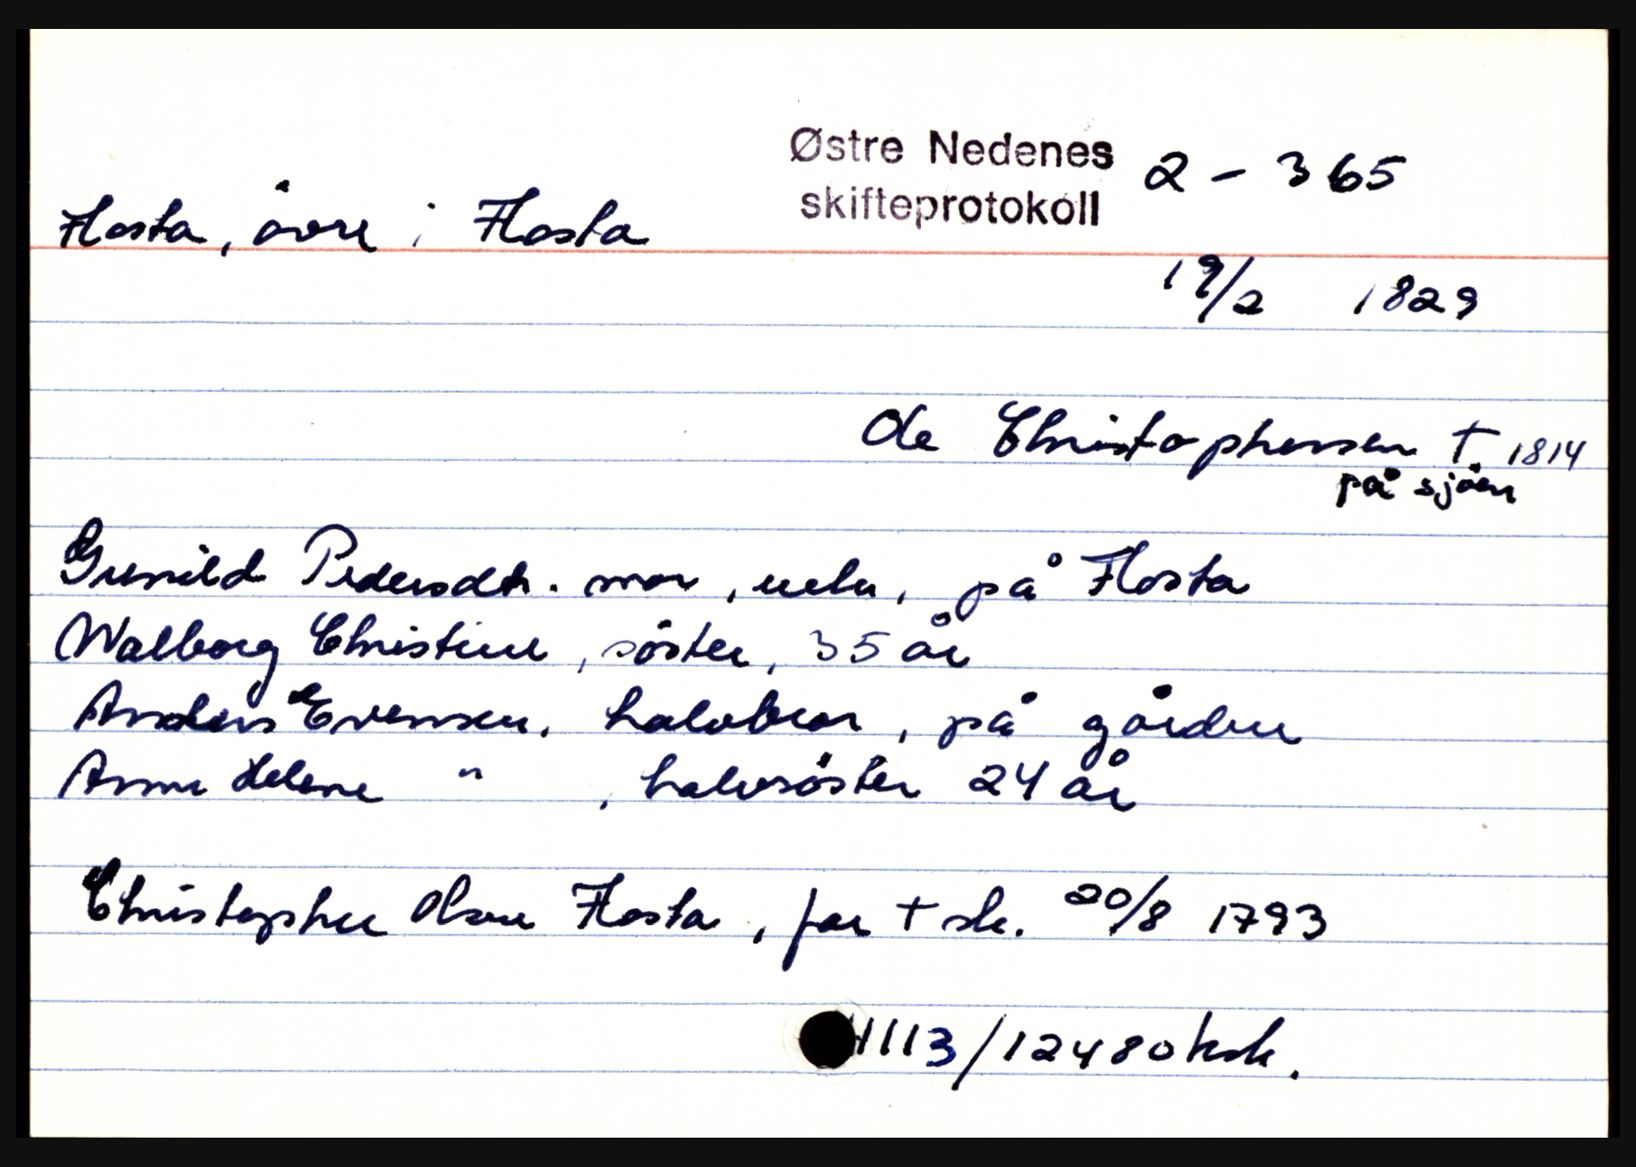 Østre Nedenes 2 - 365
skifteprotokoll
Flosta, övre i Flosta
19/2 1829
Ole Christophersen † 1814
på sjøen
Gunild Pedersdtr. mor, enke, på Flosta
Walborg Christine, söster, 35 år
Anders Evensen, halvbror, på gården
Anne Helene " , halvsöster 24 år
Christopher Olsen Flosta, far † sk. 20/8 1793
1113/12480